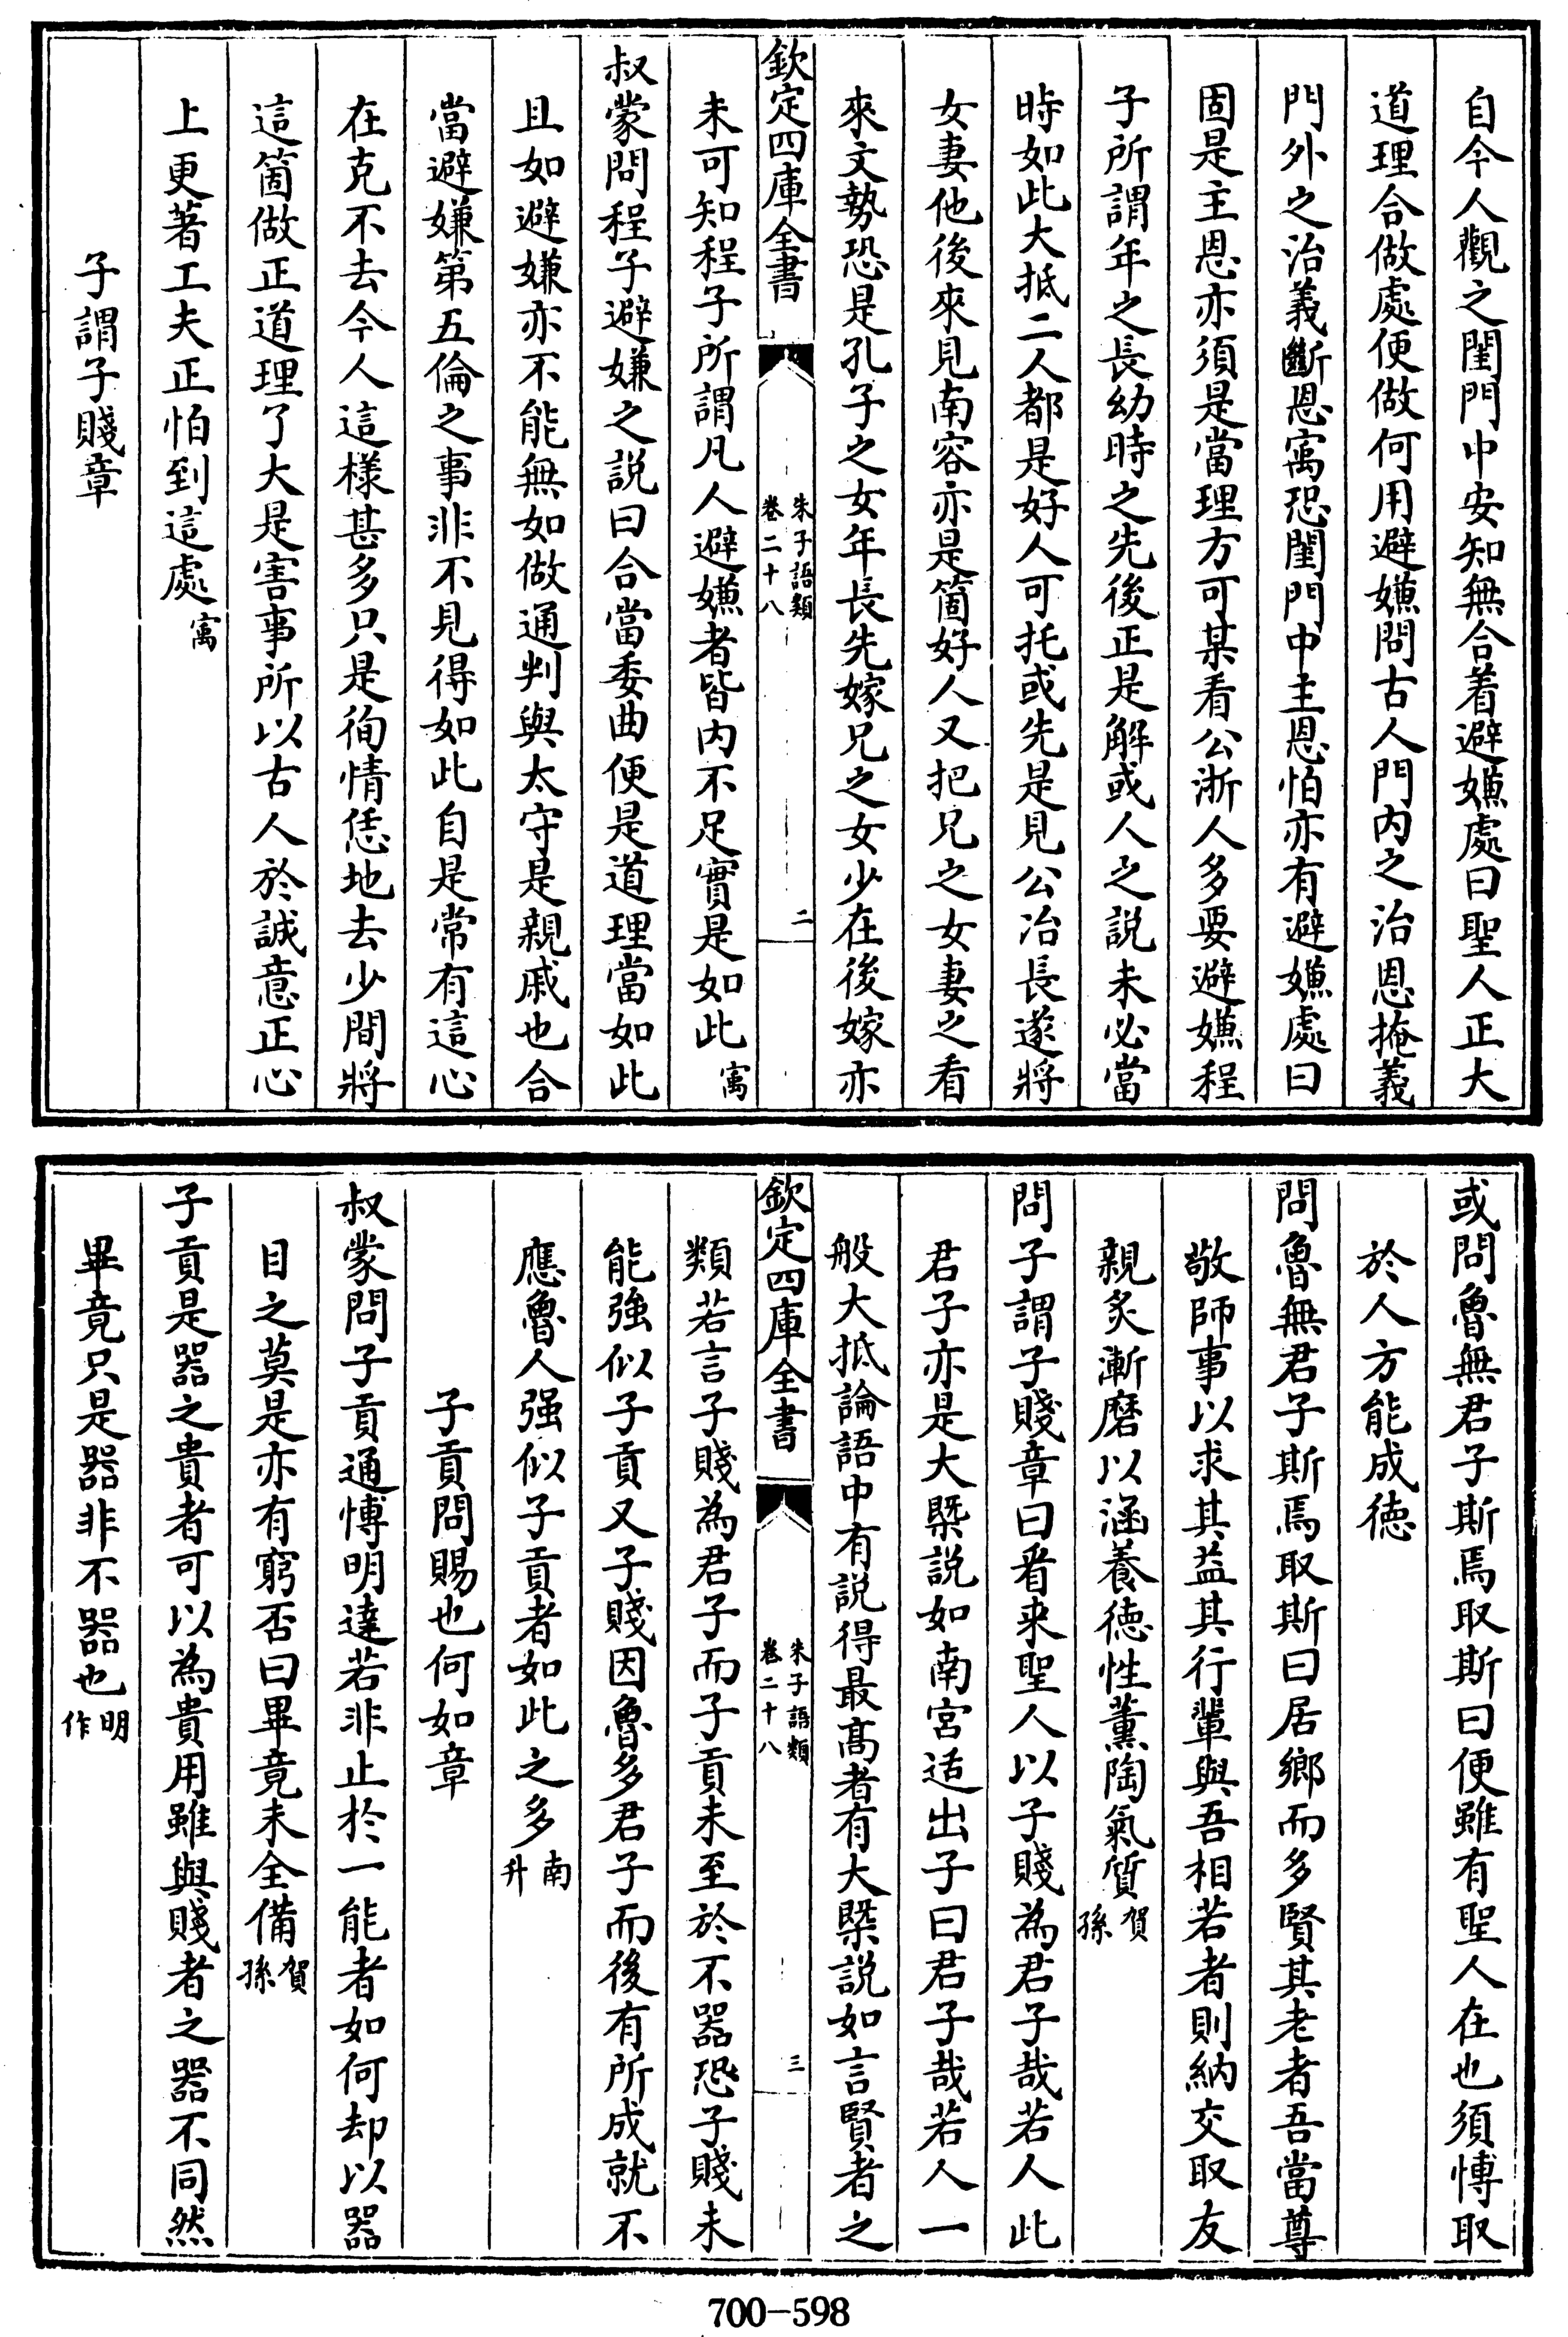 自今人觀之閨門中安知無合着避嫌處曰聖人正大
道理合做處便做何用避嫌問古人門内之治恩掩義
門外之治義斷恩寓恐閨門中主恩怕亦有避嫌處曰
固是主恩亦須是當理方可某看公浙人多要避嫌程
子所謂年之長幼時之先後正是解或人之説未必當
時如此大抵二人都是好人可托或先是見公冶長遂將
女妻他後來見南容亦是箇好人又把兄之女妻之看
來文勢恐是孔子之女年長先嫁兄之女少在後嫁亦
欽定四庫全書
朱子語類
卷二十八
二
未可知程子所謂凡人避嫌者皆内不足實是如此寓
叔蒙問程子避嫌之説曰合當委曲便是道理當如此
且如避嫌亦不能無如做通判與太守是親戚也合
當避嫌第五倫之事非不見得如此自是常有這心
在克不去今人這樣甚多只是徇情恁地去少間將
這箇做正道理了大是害事所以古人於誠意正心
上更著工夫正怕到這處寓
子謂子賤章
或問魯無君子斯焉取斯曰便雖有聖人在也須博取
於人方能成徳
問魯無君子斯焉取斯曰居鄉而多賢其老者吾當尊
敬師事以求其益其行輩與吾相若者則納交取友
親炙漸磨以涵養徳性薰陶氣質賀孫
問子謂子賤章曰看来聖人以子賤為君子哉若人此
君子亦是大槩説如南宮适出子曰君子哉若人一
般大抵論語中有説得最髙者有大槩説如言賢者之
欽定四庫全書
朱子語類
卷二十八
三
類若言子賤為君子而子貢未至於不器恐子賤未
能強似子貢又子賤因魯多君子而後有所成就不
應魯人强似子貢者如此之多南升
子貢問賜也何如章
叔蒙問子貢通博明達若非止於一能者如何却以器
目之莫是亦有窮否曰畢竟未全備賀孫
子貢是器之貴者可以為貴用雖與賤者之器不同然
畢竟只是器非不器也明作
700-598